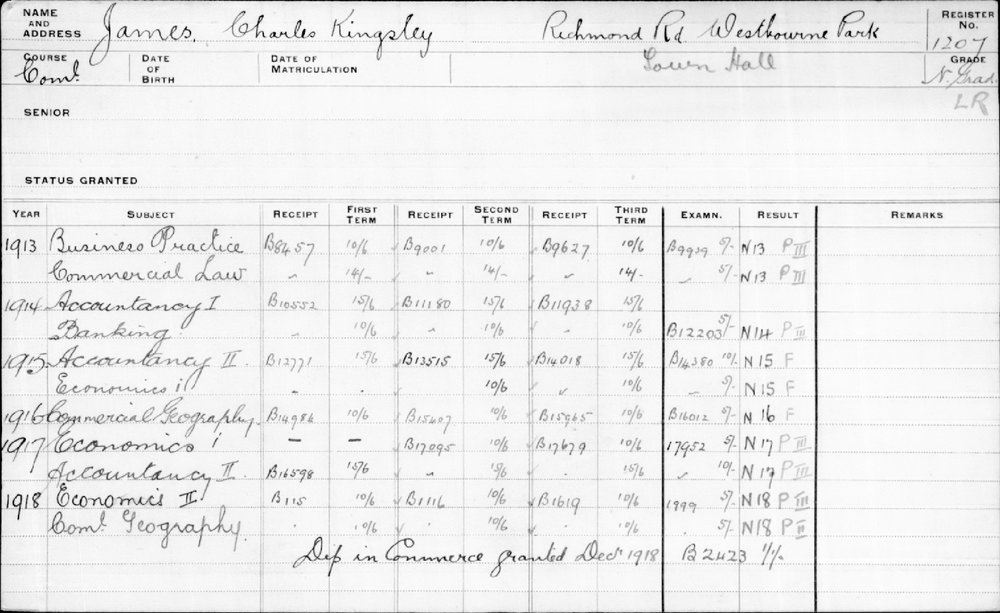 NAME AND ADDRESS James, Charles Kingsley Richmond Rd. Westbourne Park REGISTER No. 1207
COURSE Coml. DATE OF BIRTH DATE OF MATRICULATION Town Hall GRADE N. Grad.
LR
SENIOR
STATUS GRANTED
YEAR SUBJECT RECEIPT FIRST TERM RECEIPT SECOND TERM RECEIPT THIRD TERM EXAMN. RESULT REMARKS
1913 Business Practice B8457 10/6 B9001 10/6 B9627 10/6 B9939 5/- N13 P III
Commercial Law " 14/- " 14/- " 14/- " 5/- N13 P III
1914 Accountancy I B10552 15/6 B11180 15/6 B11938 15/6
Banking " 10/6 " 10/6 " 10/6 B12203 5/- N14 P III
1915 Accountancy II B12771 15/6 B13515 15/6 B14018 15/6 B14380 10/- N15 F
Economics i " . 10/6 " 10/6 " 5/- N15 F
1916 Commercial Geography B14986 10/6 B15407 10/6 B15965 10/6 B16012 5/- N16 F
1917 Economics i — — B17095 10/6 B17679 10/6 17952 5/- N17 P III
Accountancy II B16598 15/6 " 15/6 " 15/6 " 10/- N17 P III
1918 Economics II B115 10/6 B1116 10/6 B1619 10/6 1999 5/- N18 P III
Coml. Geography . 10/6 . 10/6 . 10/6 . 5/- N18 P II
Dip in Commerce granted Decr 1918 B2423